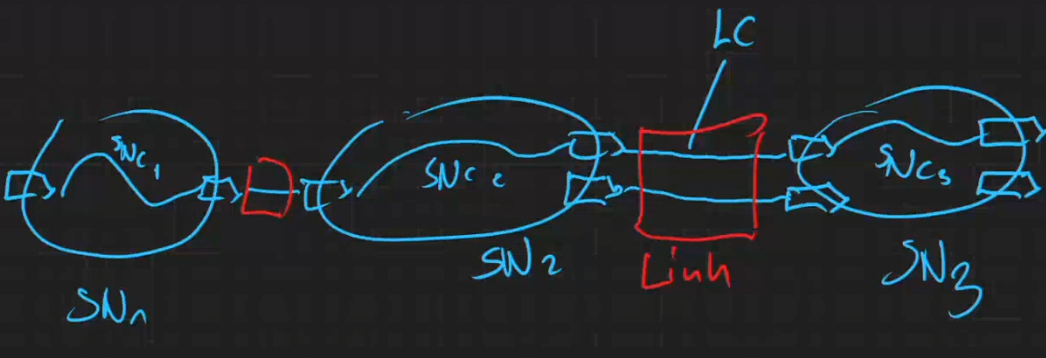 LC
SNC₁
SNC₂
SNC₃
SN₁
SN₂
Link
SN₃